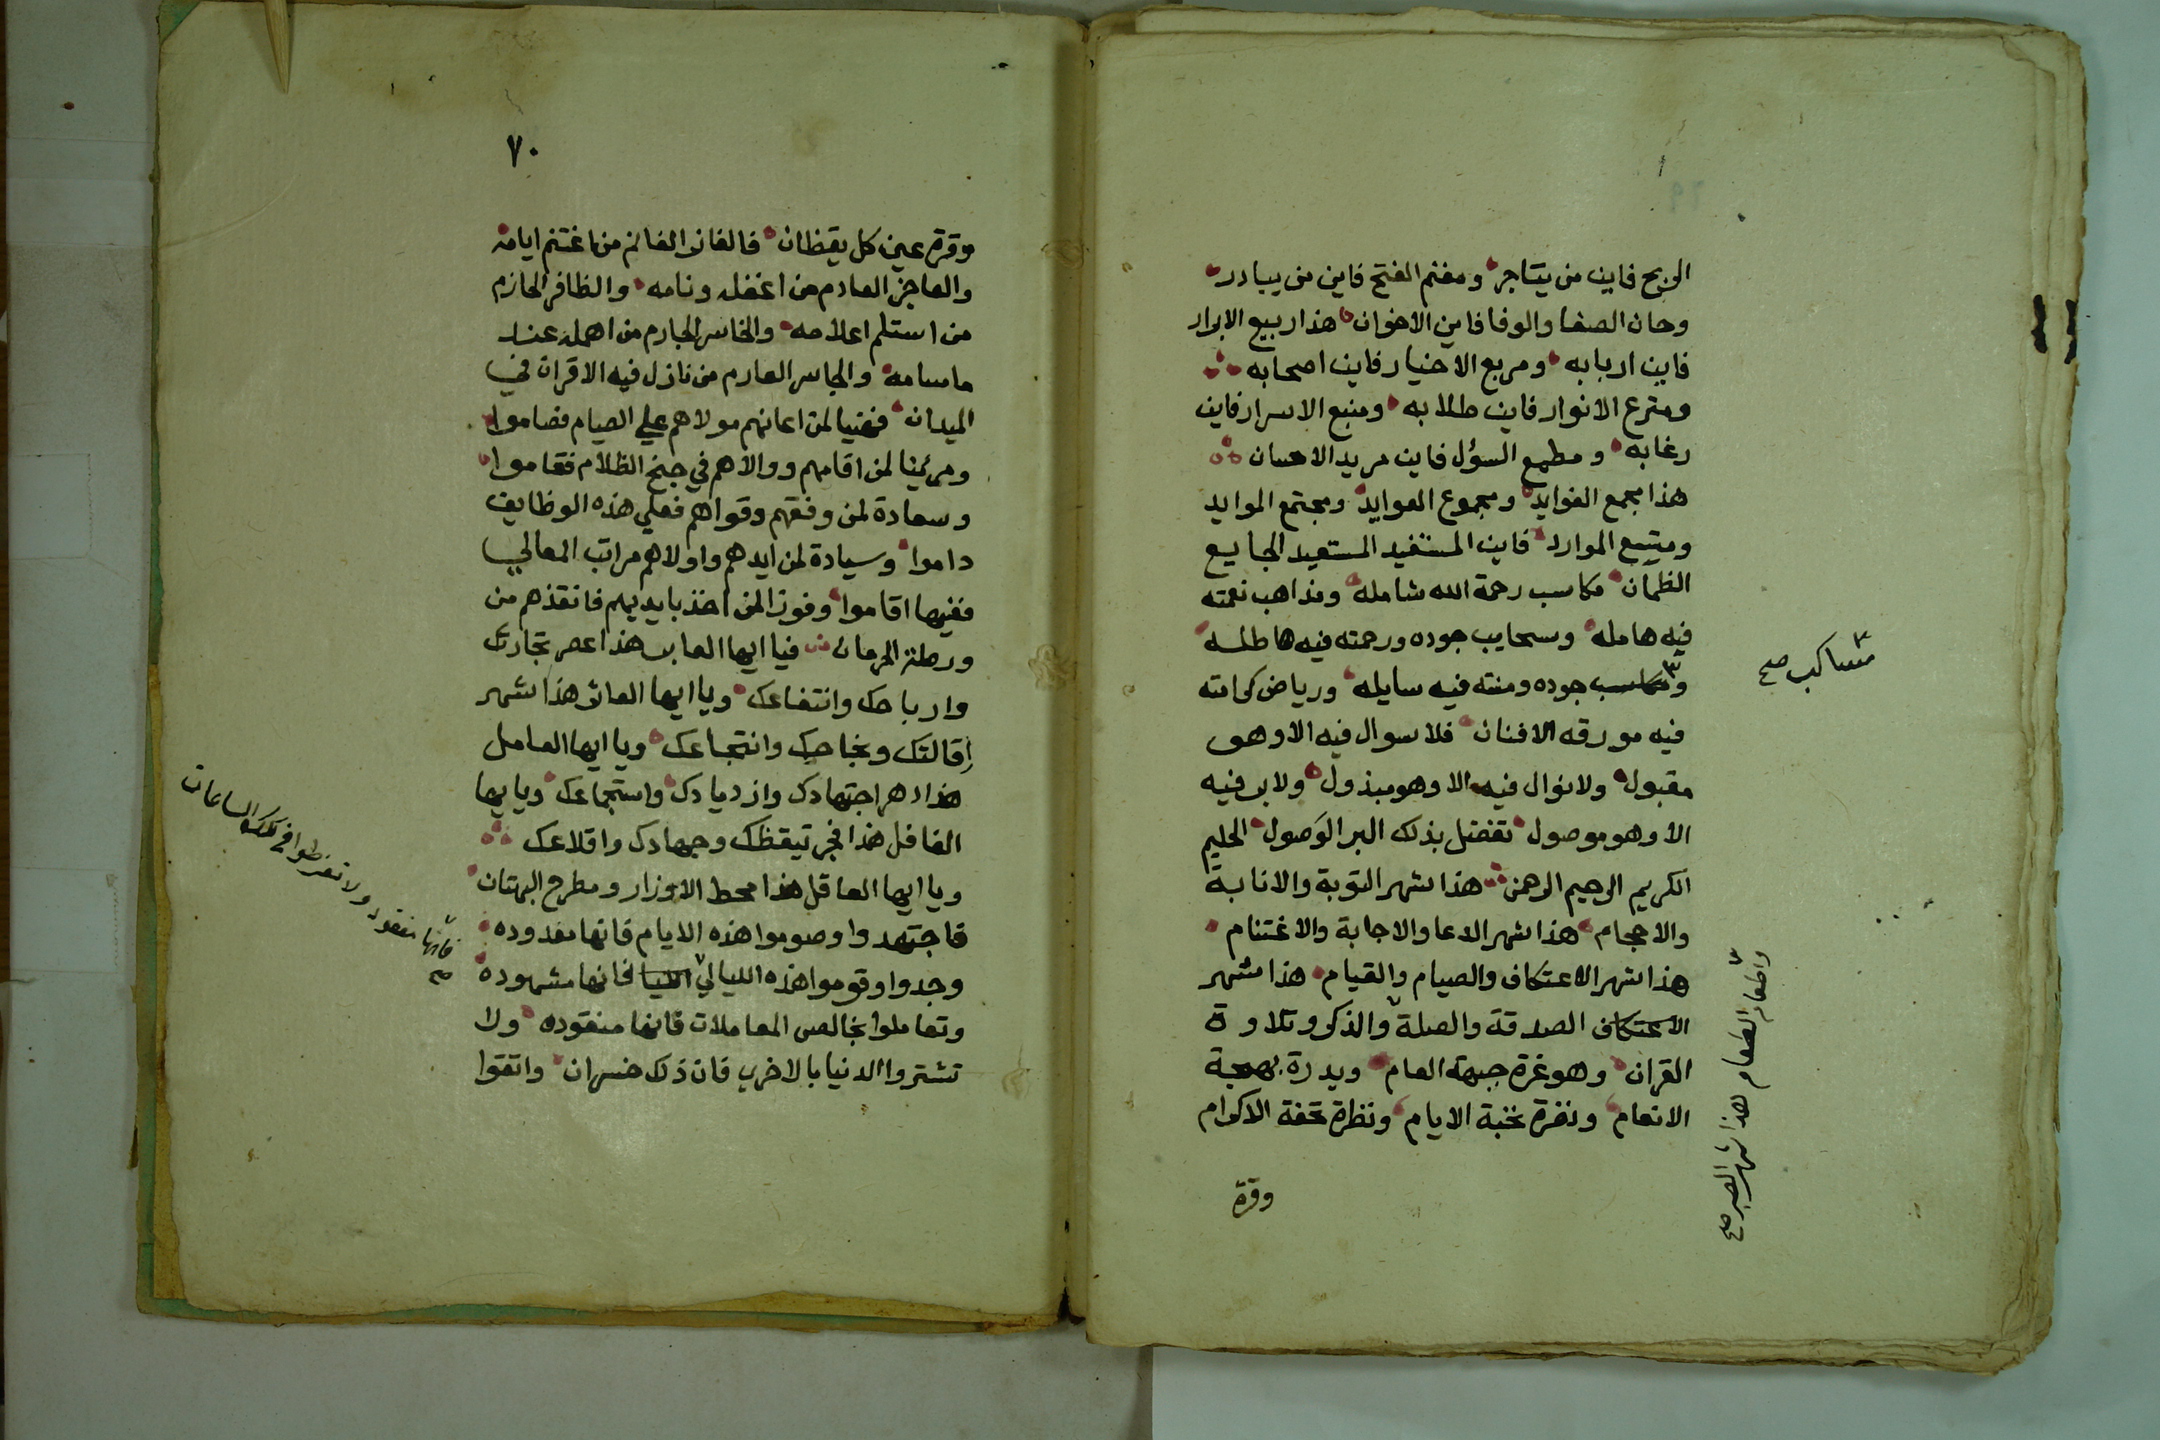 الربح فاين من يتاجر ومغنم الفتح فاين من يبادر
وحان الصفا والوفا فاين الاخوان هذا ربيع الابرار
فاين اربابه ومربع الاخيار فاين اصحابه
ومترع الانوار فاين طلابه ومنبع الاسرار فاين
رغابه ومطمع السؤل فاين مريد الاحسان
هذا مجمع الفوايد ومجموع العوايد ومجتمع الموايد
ومتسع الموارد فاين المستفيد المستعيد الجايع
الظمآن مكاسب رحمة الله شامله ومذاهب نعمته
فيه هامله وسحايب جوده ورحمته فيه هاطله
ومكاسب جوده ومنته فيه سايله ورياض كرامته
فيه مورقه الافنان فلا سوال فيه الا وهو
مقبول ولا نوال فيه الا وهو مبذول ولا بر فيه
الا وهو موصول تفضل بذلك البر الوَصول الحليم
الكريم الرحيم الرحمن هذا شهر التوبة والانابة
والاحجام هذا شهر الدعا والاجابة والاغتنام
هذا شهر الاعتكاف والصيام والقيام هذا شهر
الاعتكاف الصدقة والصلة والذكر وتلاوة
القران وهو غرة جبهة العام وبدرة بهجة
الانعام ونضرة نخبة الايام ونظرة تحفة الاكرام
وقرة
مساكب صح
واطعام الطعام هذا شهر الصبر صح
٧٠
وقرة عين كل يقظان فالفايز الغانم من اغتنم ايامه
والعاجز العادم من اغفله ونامه والظافر الحازم
من استلم اعلامه والخاسر الجارم من اهمله عند
ماسامه والجاسر العارم من نازل فيه الاقران في
الميدان فهنيا لمن اعانهم مولاهم علي الصيام فصاموا
ومريئا لمن اقامهم ووالاهم في جنح الظلام فقاموا
وسعادة لمن وفقهم وقواهم فعلي هذه الوظايف
داموا وسيادة لمن ايدهم واولاهم مراتب المعالي
ففيها اقاموا وفوز المن اخذ بايديهم فانقذهم من
ورطة الحرمان فيا ايها العابد هذا عصر تجارتك
وارباحك وانتفاعك ويا ايها العاثر هذا شهر
اقالتك ونجاحك وانتجاعك ويا ايها العامل
هذا دهر اجتهادك وازديادك واستجماعك ويا يها
الغافل هذا فجر تيقظك وجهادك واقلاعك
ويا ايها العاقل هذا محط الاوزار ومطرح البهتان
فاجتهدوا وصوموا هذه الايام فانها معدوده
وجدوا وقوموا هذه الليالي الليا فانها مشهوده
وتعاملوا بخالص المعاملات فانها منقوده ولا
تشتروا الدنيا بالاخري فان ذلك خسران واتقوا
فانها مفقوده ولا تفرطوا في تلك الساعات